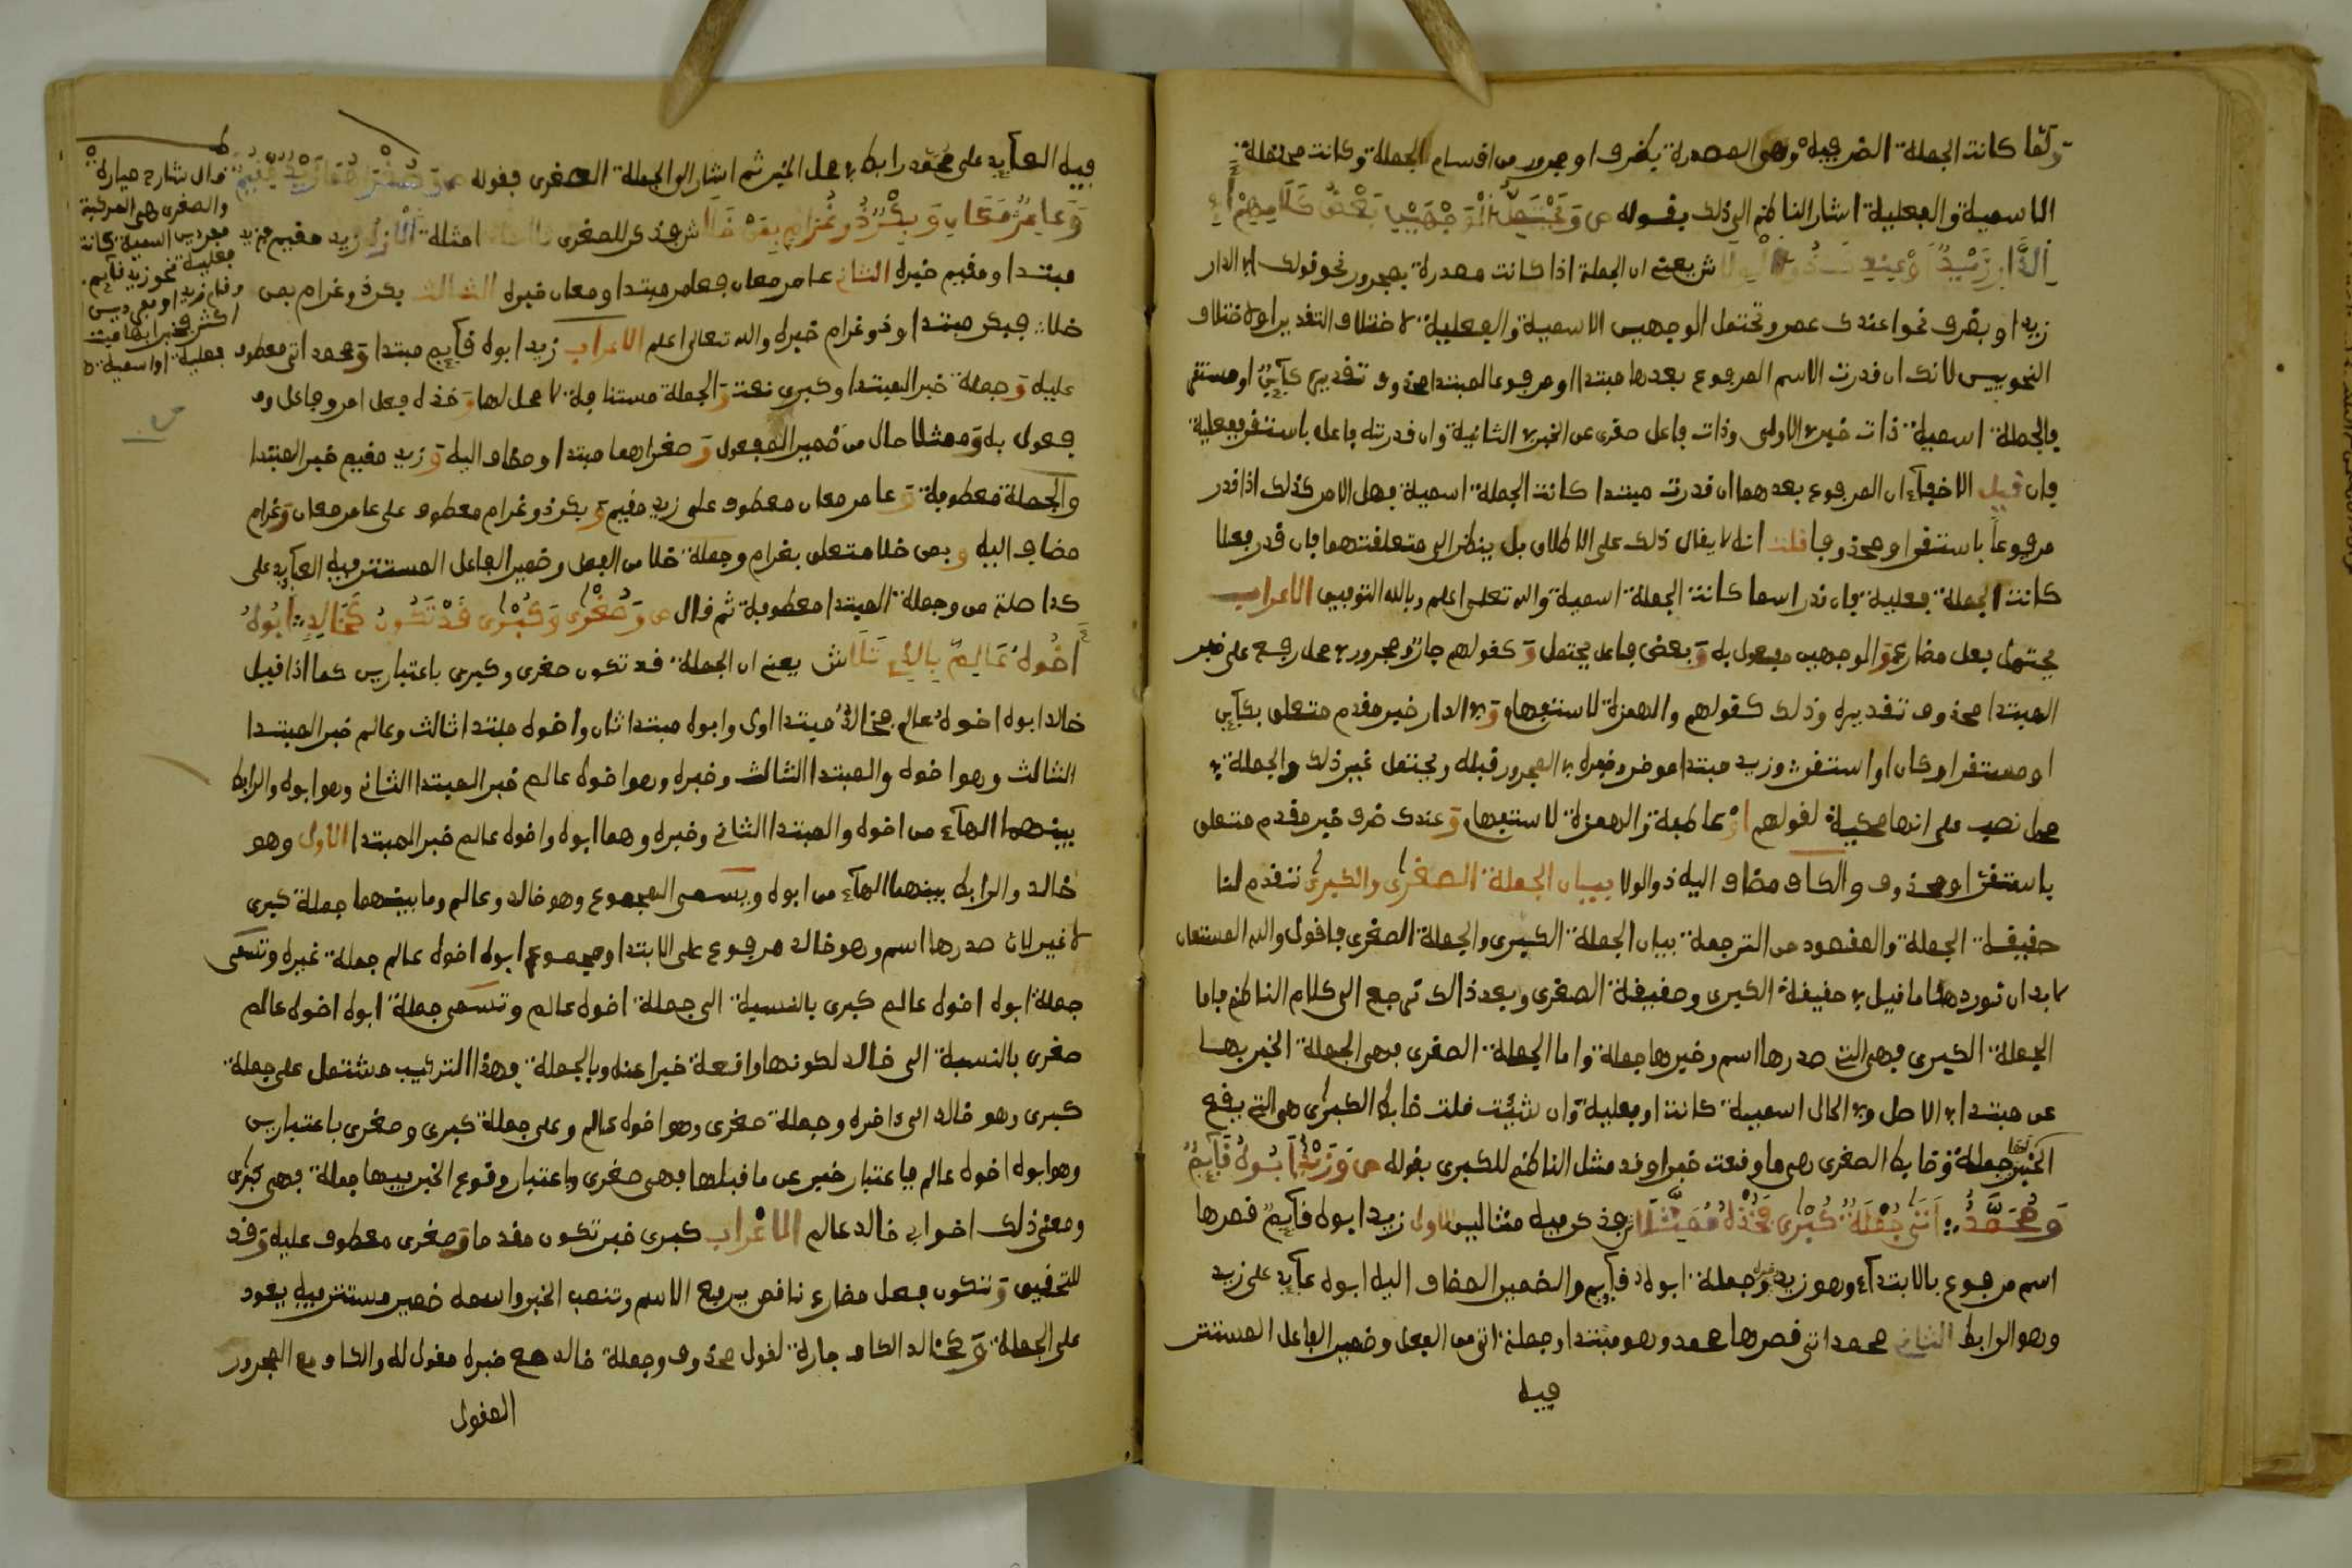 ولما كانت الجملة الظرفية وهي المصدرة بظرف او مجرور من اقسام الجملة وكانت محتملة
الاسمية والفعلية اشار الناظم الى ذلك بقوله ص وتحتمل الوجهين بعض كلامهم أفي
الدار زيد او عندك ذو الولا ش يعني ان الجملة اذا كانت مصدرة بمجرور نحو قولك افي الدار
زيد او بظرف نحو اعندك عمرو تحتمل الوجهين الاسمية والفعلية لاختلاف التقدير او لاختلاف
النحويين لانك ان قدرت الاسم المرفوع بعدها مبتدا او مرفوعا لمبتدا محذوف تقديره كاين او مستقر
فالجملة اسمية ذات خبر في الاولى وذات فاعل مغن عن الخبر في الثانية وان قدرته فاعلا باستقر ففعلية
فان قيل لا خفاء ان المرفوع بعدهما ان قدرت مبتدا كانت الجملة اسمية فهل الامر كذلك اذا قدر
مرفوعا باستقر او محذوفا قلت انه لا يقال ذلك على الاطلاق بل ينظر الى متعلقتهما فان قدر فعلا
كانت الجملة فعلية فان قدر اسما كانت الجملة اسمية والله تعلى اعلم وبالله التوفيق الاعراب
يحتمل فعل مضارع و الوجهين مفعول به و بعض فاعل يحتمل و كقولهم جار ومجرور في محل رفع على خبر
المبتدا محذوف تقديره وذلك كقولهم والهمزة للاستفهام و في الدار خبر مقدم متعلق بكاين
او مستقر او كان او استقر وزيد مبتدا موخر وخبره في المجرور قبله ويحتمل غير ذلك والجملة في
محل نصب على انها محكية لقولهم او عاطفة والهمزة للاستفهام و عندك ظرف خبر مقدم متعلق
باستقر او محذوف والكاف مضاف اليه ذو الولا بيان الجملة الصغرى والكبرى تقدم لنا
حقيقة الجملة والمقصود من الترجمة بيان الجملة الكبرى والجملة الصغرى فاقول والله المستعان
لابد ان نورد هنا ما قيل في حقيقة الكبرى وحقيقة الصغرى وبعد ذالك نرجع الى كلام الناظم فاما
الجملة الكبرى فهي التي صدرها اسم وخبرها جملة واما الجملة الصغرى فهي الجملة المخبر بها
عن مبتدا في الاصل وفي الحال اسمية كانت او فعلية وان شئت قلت ضابط الكبرى هي التي يقع
الخبر فيها جملة وضابط الصغرى هي ما وقعت خبرا وقد مثل الناظم للكبرى بقوله ص وزيد ابوه قايم
ومحمد اتى جملة كبرى فخذه ممثلا ش فذكر فيه مثالين الاول زيد ابوه قايم فصدرها
اسم مرفوع بالابتداء وهو زيد وخبره جملة ابوه قايم والضمير المضاف اليه ابوه عايد على زيد
وهو الرابط الثاني محمد اتى فصدرها محمد وهو مبتدا وجملة اتى من الفعل وضمير الفاعل المستتر
فيه
فيه العايد على محمد رابط في محل الخبر ثم اشار الى الجملة الصغرى بقوله ص وصغراهما زيد مقيم
وعامر معان وبكر ذو غرام بمن خلا ش فذكر للصغرى ثلاثة امثلة الاول زيد مقيم فزيد
مبتدا ومقيم خبره الثاني عامر معان فعامر مبتدا ومعان خبره الثالث بكر ذو غرام بمن
خلا فبكر مبتدا وذو غرام خبره والله تعالى اعلم الاعراب زيد ابوه قايم مبتدا و محمد اتى معطوف
عليه و جملة خبر المبتدا وكبرى نعت و الجملة مستانفة لا محل لها و فخذه فعل امر وفاعل وم
فعول به و ممثلا حال من ضمير المفعول و صغراهما مبتدا ومضاف اليه و زيد مقيم خبر المبتدا
والجملة معطوفة و عامر معان معطوف على زيد مقيم و بكر ذو غرام معطوف على عامر معان و غرام
مضاف اليه و بمن خلا متعلق بغرام وجملة خلا من الفعل وضمير الفاعل المستتر فيه العايد على
كذا صلة من وجملة المبتدا معطوفة ثم قال ص وصغرى وكبرى قد تكون كخالد ابوه
اخوه عالم بالذي تلا ش يعني ان الجملة قد تكون صغرى وكبرى باعتبارين كما اذا قيل
خالد ابوه اخوه عالم فخالد مبتدا اول وابوه مبتدا ثان واخوه مبتدا ثالث وعالم خبر المبتدا
الثالث وهو اخوه والمبتدا الثالث وخبره وهو اخوه عالم خبر المبتدا الثاني وهو ابوه والرابط
بينهما الهاء من اخوه والمبتدا الثاني وخبره وهما ابوه واخوه عالم خبر المبتدا الاول وهو
خالد والرابط بينهما الهاء من ابوه ويسمى المجموع وهو خالد وعالم وما بينهما جملة كبرى
لا غير لان صدرها اسم وهو خالد مرفوع على الابتدا ومجموع ابوه اخوه عالم جملة خبره وتسمى
جملة ابوه اخوه عالم كبرى بالنسبة الى جملة اخوه عالم وتسمى جملة ابوه اخوه عالم
صغرى بالنسبة الى خالد لكونها واقعة خبرا عنه وبالجملة فهذا التركيب مشتمل على جملة
كبرى وهو خالد الى ءاخره وجملة صغرى وهو اخوه عالم وعلى جملة كبرى وصغرى باعتبارين
وهو ابوه اخوه عالم فباعتبار خبر عن ما قبلها فهي صغرى وباعتبار وقوع الخبر فيها جملة فهي كبرى
ومعنى ذلك اخو ابي خالد عالم الاعراب كبرى خبر تكون مقدما و صغرى معطوف عليه و قد
للتحقيق و تكون فعل مضارع ناقص يرفع الاسم وتنصب الخبر واسمه ضمير مستتر فيه يعود
على الجملة و كخالد الكاف جارة لقول محذوف وجملة خالد مع خبره مقول له والكاف مع المجرور
المقول
قال شارح ميارة
والصغرى هي المركبة
من جزءين اسمية كانت
نحو زيد قايم
فعلية او اسمية